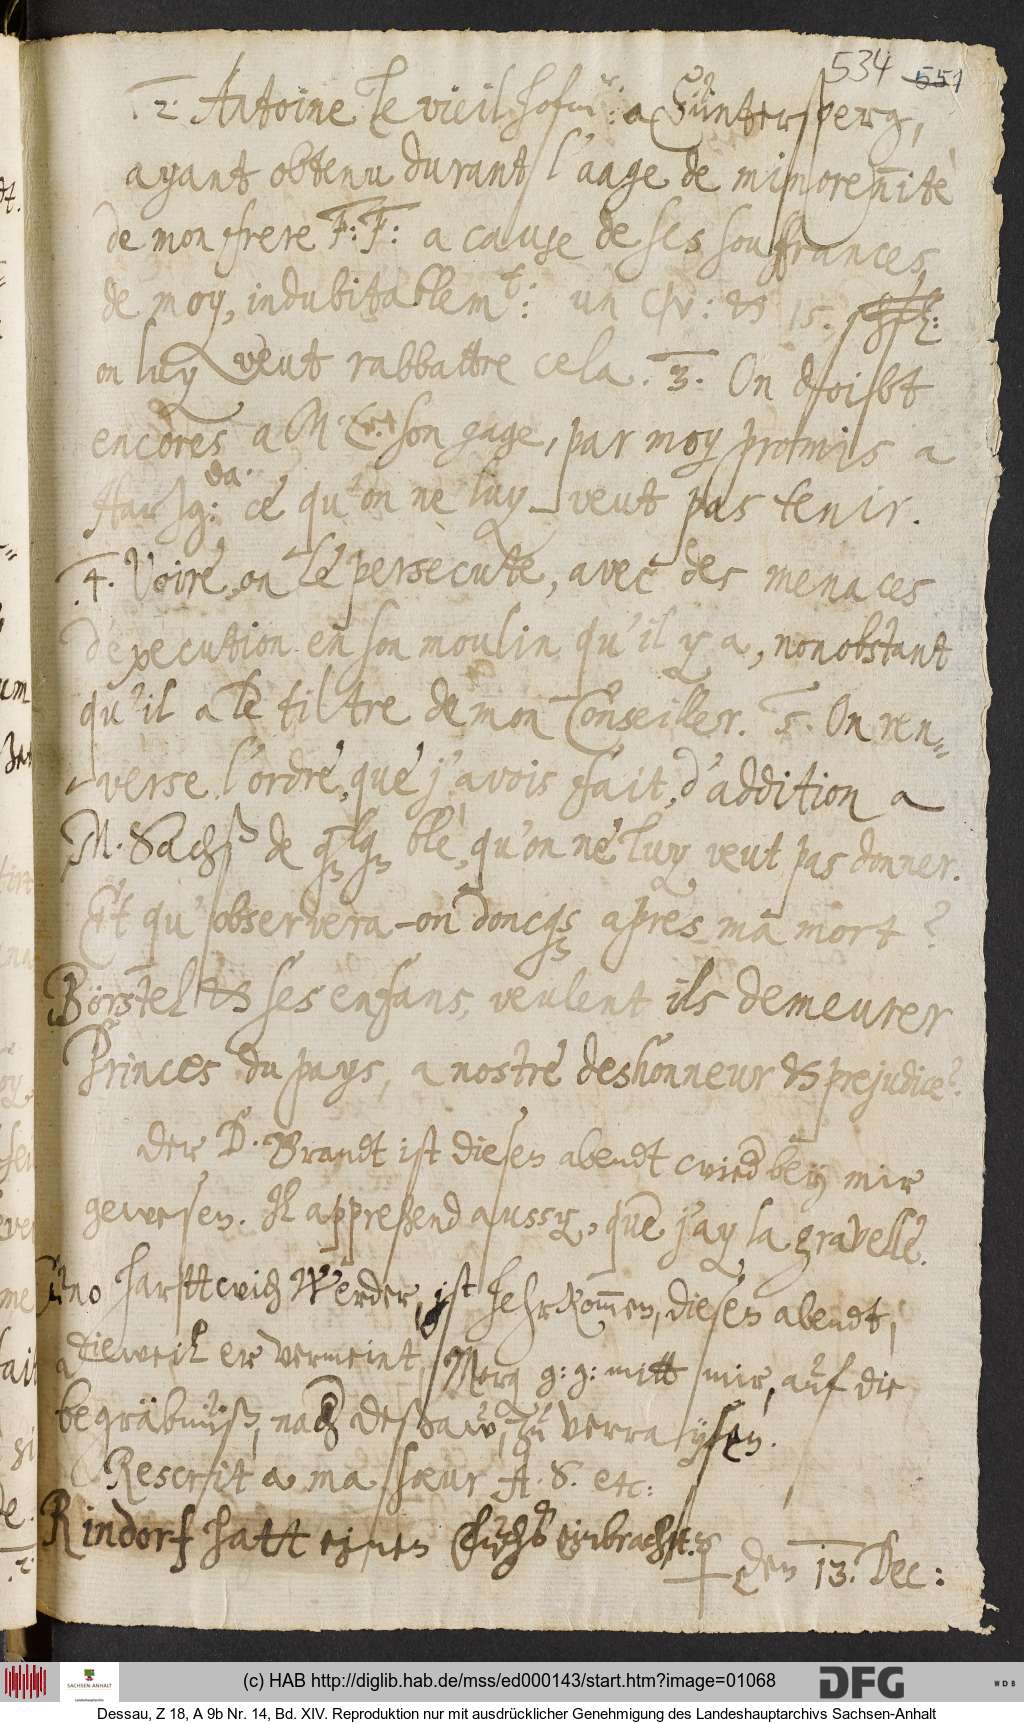 534 551
.2. Antoine le vieil hofm: a Güntersperg,
ayant obtenu durant l'aage de minorennitè
de mon frere F: F: a cause de ses souffrances,
de moy, indubitablemt: un & 15.
on luy veut rabbattre cela. 3. On doibt
encores a M son gage, par moy promis a
Hartzg: da. ce qu'on ne luy veut pas tenir.
.4. Voire, on le persecute, avec des menaces
d'execution en son moulin qu'il y a, nonobstant
qu'il a le tiltre de mon Conseiller. 5. On ren=
verse l'ordre, que j'avois fait, d'addition a
M. Sachß de blè, qu'on ne luy veut pas donner.
Et qu'observera-on doncqs apres ma mort?
Börstel & ses enfans, veulent ils demeurer
Princes du pays, a nostre deshonneur & prejudice?
der D. Brandt ist diesen abendt wied bey mir
gewesen. Il apprehend aussy, que j'ay la gravelle.
Cuno Harttwich Werder, ist hehrkommen, diesen abendt,
dieweil er vermeint, Morg g: g: mitt mir, auf die
begräbnüß, nach Deßaw, zu verraysen.
Rescrit a ma soeur A. S. etc:
Rindorf hatt einen Fuchß einbracht.
den 13. Dec:
(c) HAB http://diglib.hab.de/mss/ed000143/start.htm?image=01068
SACHSEN-ANHALT
DFG
WDB
Dessau, Z 18, A 9b Nr. 14, Bd. XIV. Reproduktion nur mit ausdrücklicher Genehmigung des Landeshauptarchivs Sachsen-Anhalt